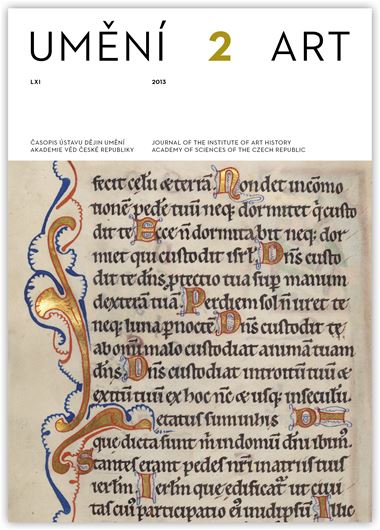 UMĚNÍ 2 ART
LXI 2013
ČASOPIS ÚSTAVU DĚJIN UMĚNÍ
AKADEMIE VĚD ČESKÉ REPUBLIKY
JOURNAL OF THE INSTITUTE OF ART HISTORY
ACADEMY OF SCIENCES OF THE CZECH REPUBLIC
fecit celū ⁊ terrā. Non det in cōmo
tionē pedē tuū neq; dormitet q custo
dit te Ecce n̄ dormitabit neq; dor
miet qui custodit isrl̄. Dn̄s custo
dit te dn̄s ꝓtectio tua sup̄ manum
dexterā tuā. Per diem sol n̄ uret te
neq; luna p noctē. Dn̄s custodit te
ab om̄i malo custodiat animā tuam
dn̄s. Dn̄s custodiat introitū tuū ⁊
exitū tuū ex hoc nc̄ ⁊ usq; in seculū
Letatus sum in his
que dicta sunt m̄ in domū dn̄i ibim᷒
Stantes erant pedes nr̄i in atriis tuis
ierl̄m Ierl̄m que edificat᷒ ut ciui
tas cui᷒ participatio ei᷒ Illuc